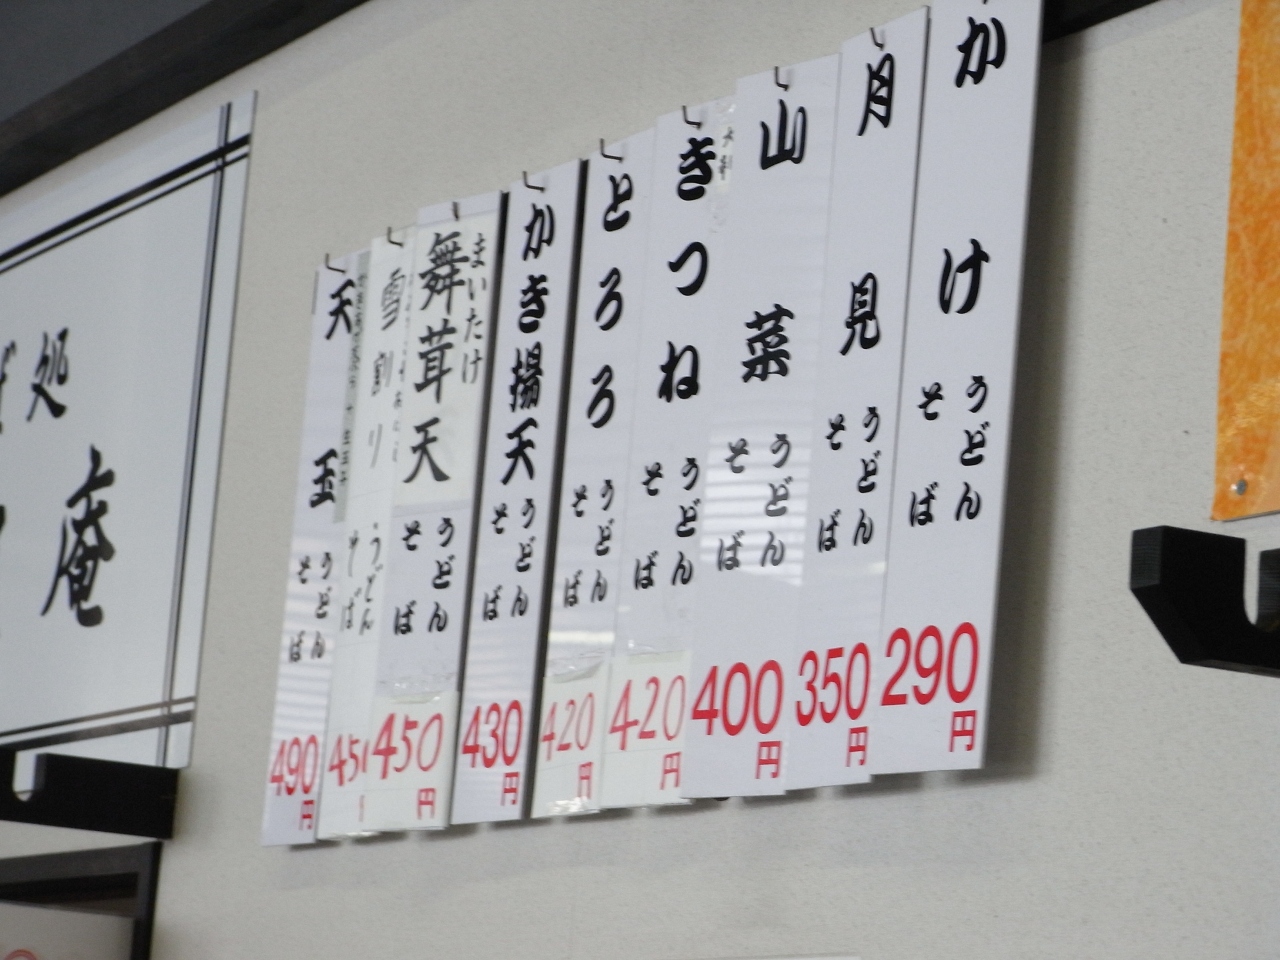 かけ
うどん
そば
290
円
月見
うどん
そば
350
円
山菜
うどん
そば
400
円
きつね
うどん
そば
420
円
とろろ
うどん
そば
420
円
かき揚天
うどん
そば
430
円
まいたけ
舞茸天
うどん
そば
450
円
雪割り
うどん
そば
天玉
うどん
そば
490
円
処
庵